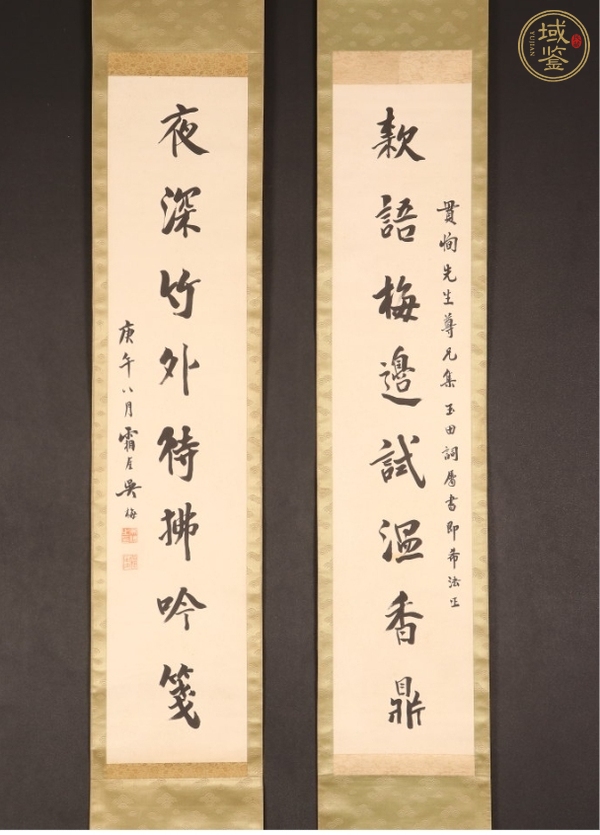 款語梅邊試溫香鼎
貫恂先生尊兄集玉田詞屬書即希法正
夜深竹外待拂吟箋
庚午八月霜厓吳梅
域鑒
YUJIAN